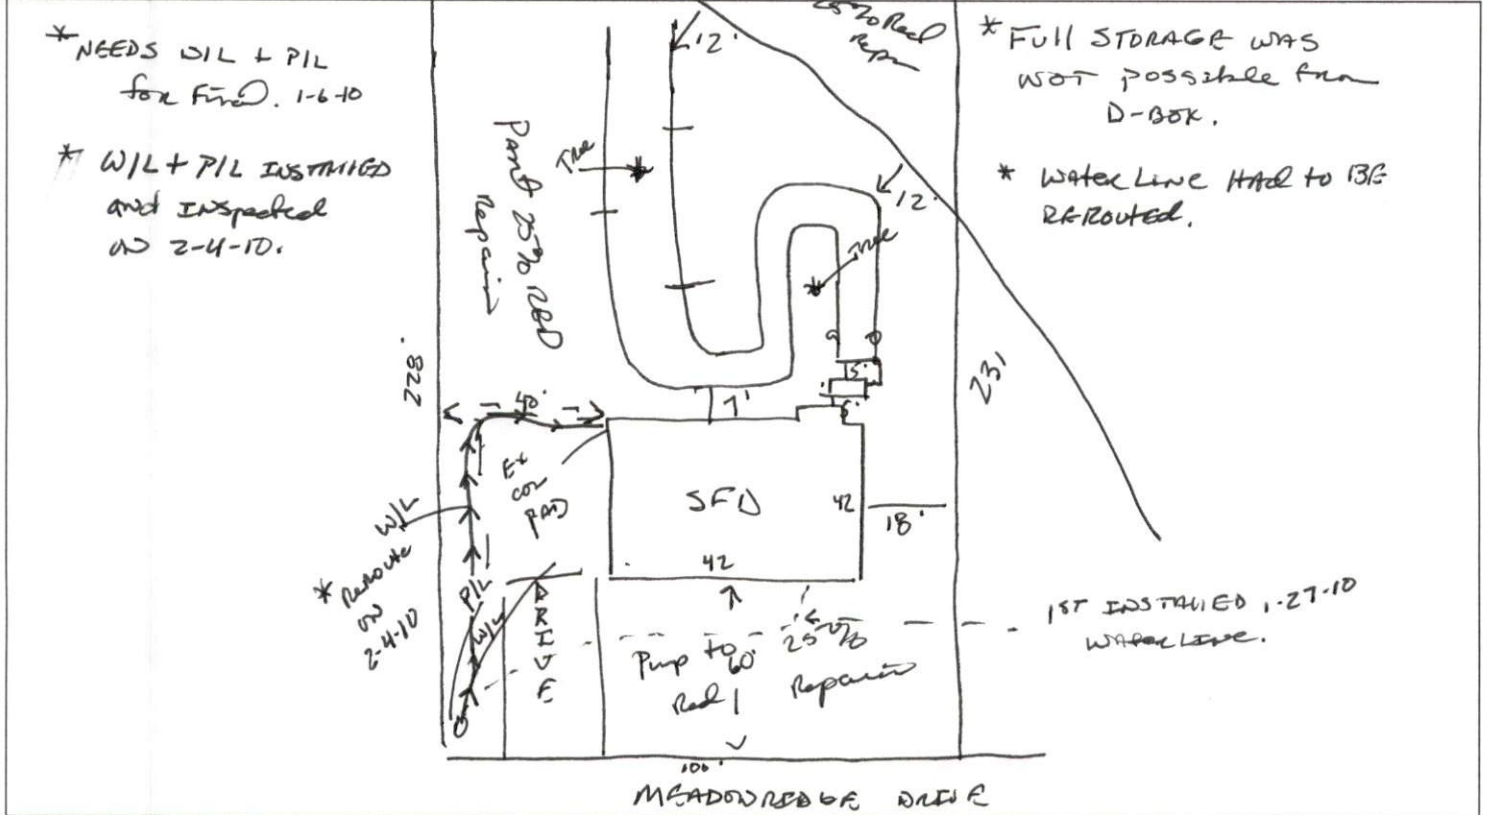 * NEEDS W/L + P/L
for Final. 1-6-10
* W/L + P/L INSTALLED
and INSpected
ON 2-4-10.
25% Red
Repair
12'
Tree
Part 25% RED
Repair
12'
Tree
* Full STORAGE WAS
NOT possible from
D-BOX.
* Water Line HAd to BE
REROUTED.
228'
231'
40'
7'
5'
5'
Ex
con
PAD
SFD
42
18'
42
W/L
* Reroute
ON
2-4-10
P/L
W/L
DRIVE
Pump to
Red
60'
25%
Repair
1ST INSTALLED 1-27-10
WATER LINE.
100'
MEADOWRIDGE DRIVE